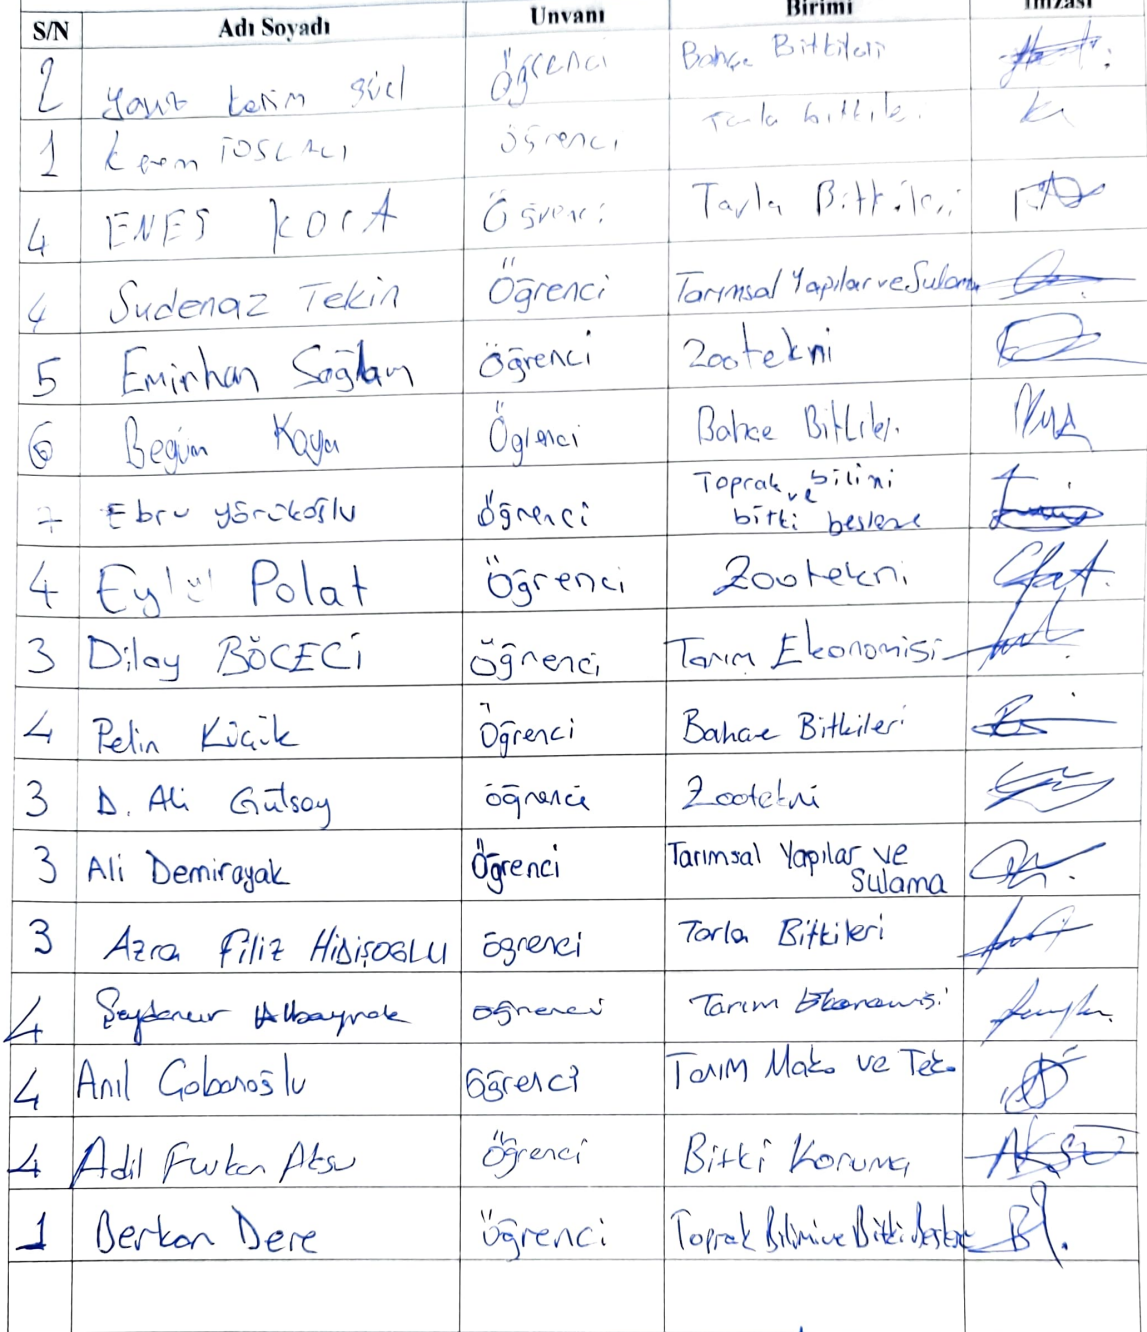 S/N Adı Soyadı Unvanı Birimi İmzası
2 Yavuz Kerim Öğrenci Bahçe Bitkileri
1 Kerem Öğrenci Tarla bitkile.
4 ENES KOCA Öğrenci Tarla Bitkileri
4 Sudenaz Tekin Öğrenci Tarımsal Yapılar ve Sulama
5 Emirhan Sağlam Öğrenci Zootekni
6 Begüm Kaya Öğrenci Bahçe Bitkileri
7 Ebru yörükoğlu öğrenci Toprak bilimi
ve
bitki besleme
4 Eylül Polat Öğrenci Zootekni
3 Dilay BÖCECİ Öğrenci Tarım Ekonomisi
4 Pelin Küçük Öğrenci Bahçe Bitkileri
3 D. Ali Gülsoy öğrenci Zootekni
3 Ali Demirayak Öğrenci Tarımsal Yapılar ve
Sulama
3 Azra Filiz HİDİŞOĞLU öğrenci Tarla Bitkileri
4 Albayrak öğrenci Tarım Ekonomisi
4 Anıl Çobanoğlu Öğrenci Tarım Mak. ve Tek.
4 Adil Furkan Aksu Öğrenci Bitki Koruma AKSU
1 Berkan Dere Öğrenci Toprak Bilimi ve Bitki Besleme